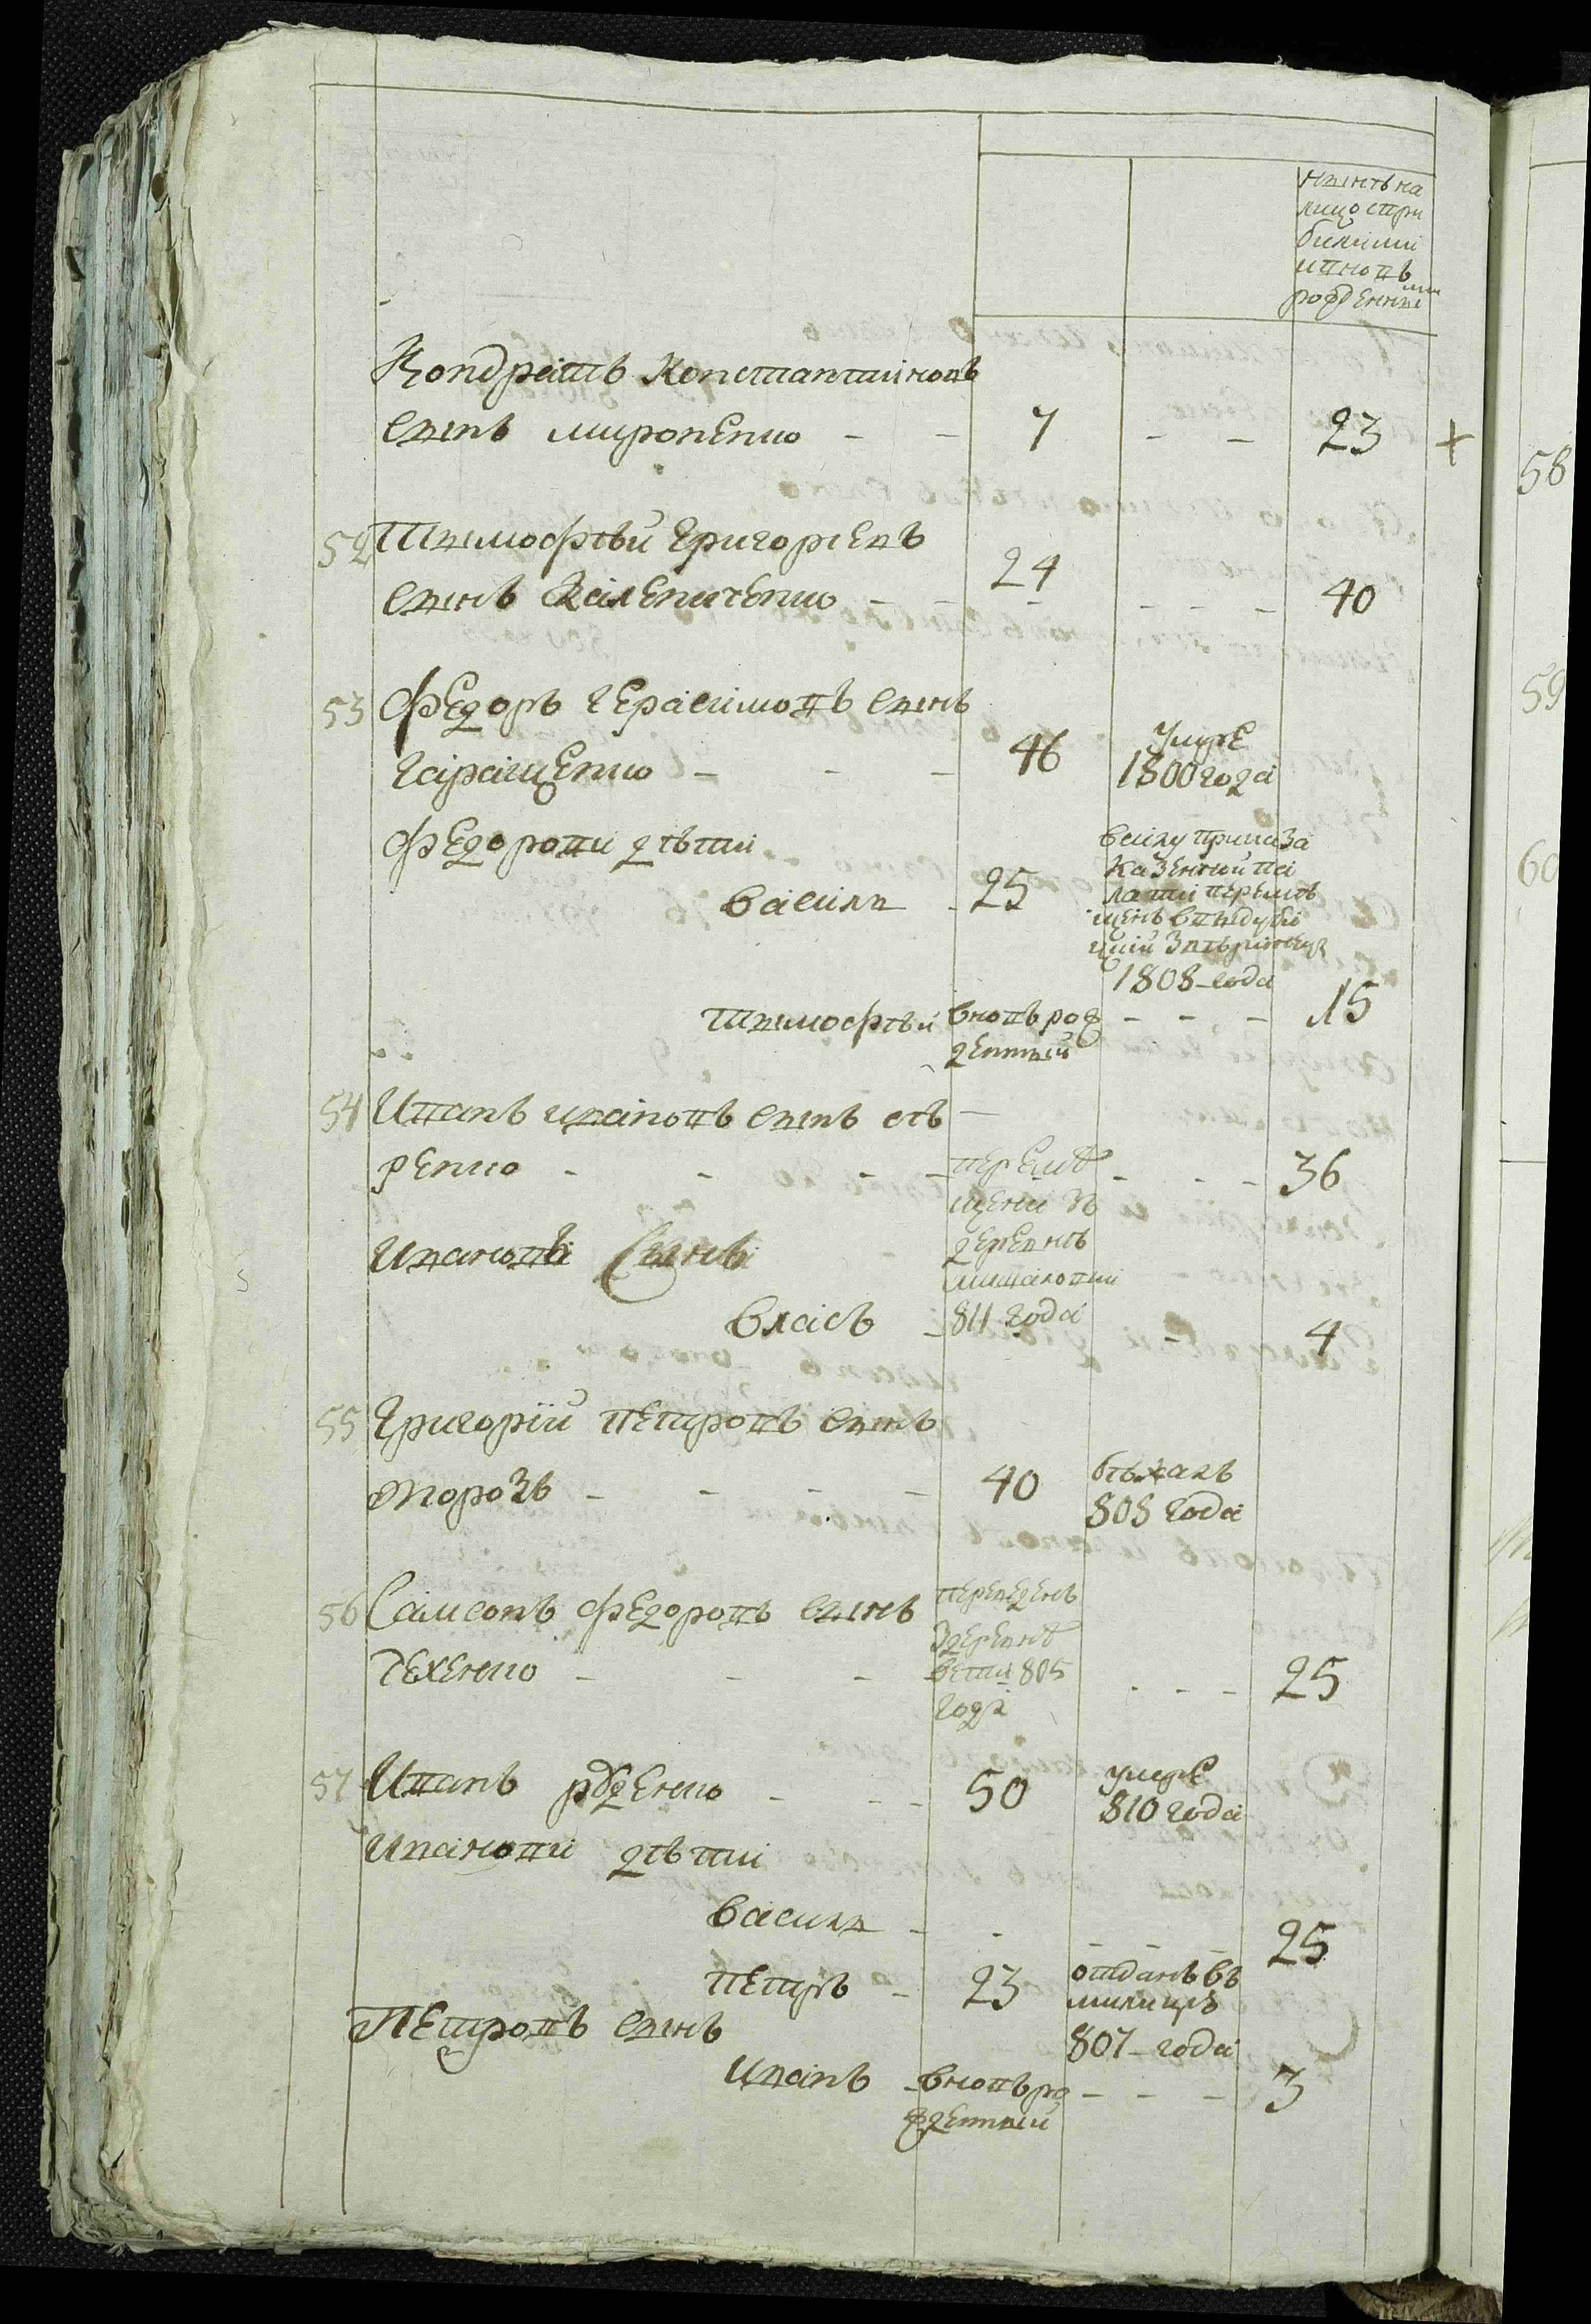 нынѣ на
лицо при
билими
и вновь
рожденнымі
Кондратъ Константиновъ
сынъ мироненко - - 7 - - 23 +
52 Тимофѣй Григорьевъ
сынъ Калениченко - - 24 - - - 40
53 Федоръ Герасимовъ сынъ
Гаращенко - - - 46 умре
1800 года
Федорови дѣти
Василь - 25
всилу приказа
Казенной па
лати перемѣ
щенъ
1808-года
тимофѣй вновь рож
денный - - - 15
54 Иванъ ивановъ сынъ сѣ
ренко - - - - перемѣ
щени въ
деревнѣ
811 года - - - 36
Иванова Сынъ
Власъ - - 4
55 Григорій петровъ сынъ
Морозъ - - - - 40 бѣжалъ
808 года
56 Самсонъ федоровъ сынъ
дехенко - - - переведенъ
здеревнѣ
805
года - - - 25
57 Иванъ рудденко - - - 50 умре
810 года
Иванови дѣти
Василь - - - - - 25
петръ - 23 отданъ въ
милицію
807-года
Петровъ сынъ
иванъ - вновь ро
жденный - - - 3
58
59
60